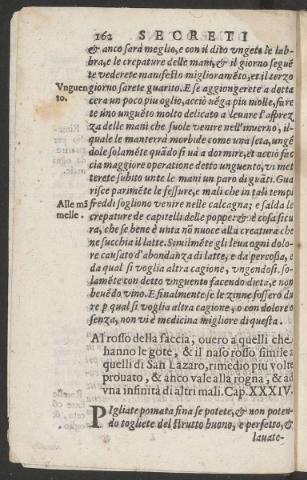 162 SECRETI
& anco sarà meglio, e con il dito ungete le lab-
bra, e le crepature delle mani, & il giorno seguẽ
te vederete manifesto miglioramẽto, et il terzo
Unguen giorno sarete guarito. E se aggiungerete a detta
to. cera un poco piu oglio, acciò vẽga piu molle, fare
te uno unguẽto molto delicato a leuare l'asprez
za delle mani che suole venire nell'inuerno, il-
quale le manterrà morbide come una seta, ungẽ
dole solamẽte quãdo si uà a dormire, et acciò fac
cia maggiore operatione detto unguento, vi met
terete subito unte le mani un paro di guãti. Gua
risce parimẽte le fessure, e mali che in tali tempi
Alle mã freddi sogliono venire nelle calcagna; e salda le
melle. crepature de capitelli delle poppe: & è cosa sicu
ra, che se bene è unta nõ nuoce alla creatura che
ne succhia il latte. Similmẽte gli leua ogni dolo-
re causato d'abondanza di latte, e da percossa, e
da qual si voglia altra cagione, vngendosi so-
lamẽte con detto vnguento facendo dieta, e non
beuẽdo vino. E finalmente se le zinne fossero du
re p qual si voglia altra cagione, o con dolore o
senza, non vi è medicina migliore di questa.
Al rosso della faccia, ouero a quelli che
hanno le gote, & il naso rosso simile a
quelli di San Lazaro, rimedio più volte
prouato, & anco vale alla rogna, & ad
vna infinità di altri mali. Cap. XXXIV.
PIgliate pomata fina se potete, & non poten-
do togliete del strutto buono, e perfetto, &
lauate-